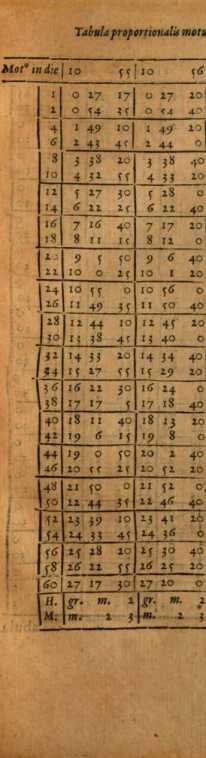 Tabula proportionalis motu
Mot° in die 10 55 10 56
1 0 27 17 0 27 20
2 0 54 35 0 54 40
4 1 49 10 1 49 20
6 2 43 45 2 44 0
8 3 38 20 3 38 40
10 4 32 55 4 33 20
12 5 27 30 5 28 0
14 6 22 25 6 22 40
16 7 16 40 7 17 20
18 8 11 15 8 12 0
20 9 5 50 9 6 40
22 10 0 25 10 1 20
24 10 55 0 10 56 0
26 11 49 35 11 50 40
28 12 44 10 12 45 20
30 13 38 45 13 40 0
32 14 33 20 14 34 40
34 15 27 55 15 29 20
36 16 22 30 16 24 0
38 17 17 5 17 18 40
40 18 11 40 18 13 20
42 19 6 15 19 8 0
44 19 0 50 20 2 40
46 20 55 25 20 52 20
48 21 50 0 21 52 0
50 22 44 35 22 46 40
52 23 39 10 23 41 20
54 24 33 45 24 36 0
56 25 28 20 25 30 40
58 26 22 55 26 25 20
60 27 17 30 27 20 0
H. gr. m. 2 gr. m. 2
M. m. 2 3 m. 2 3